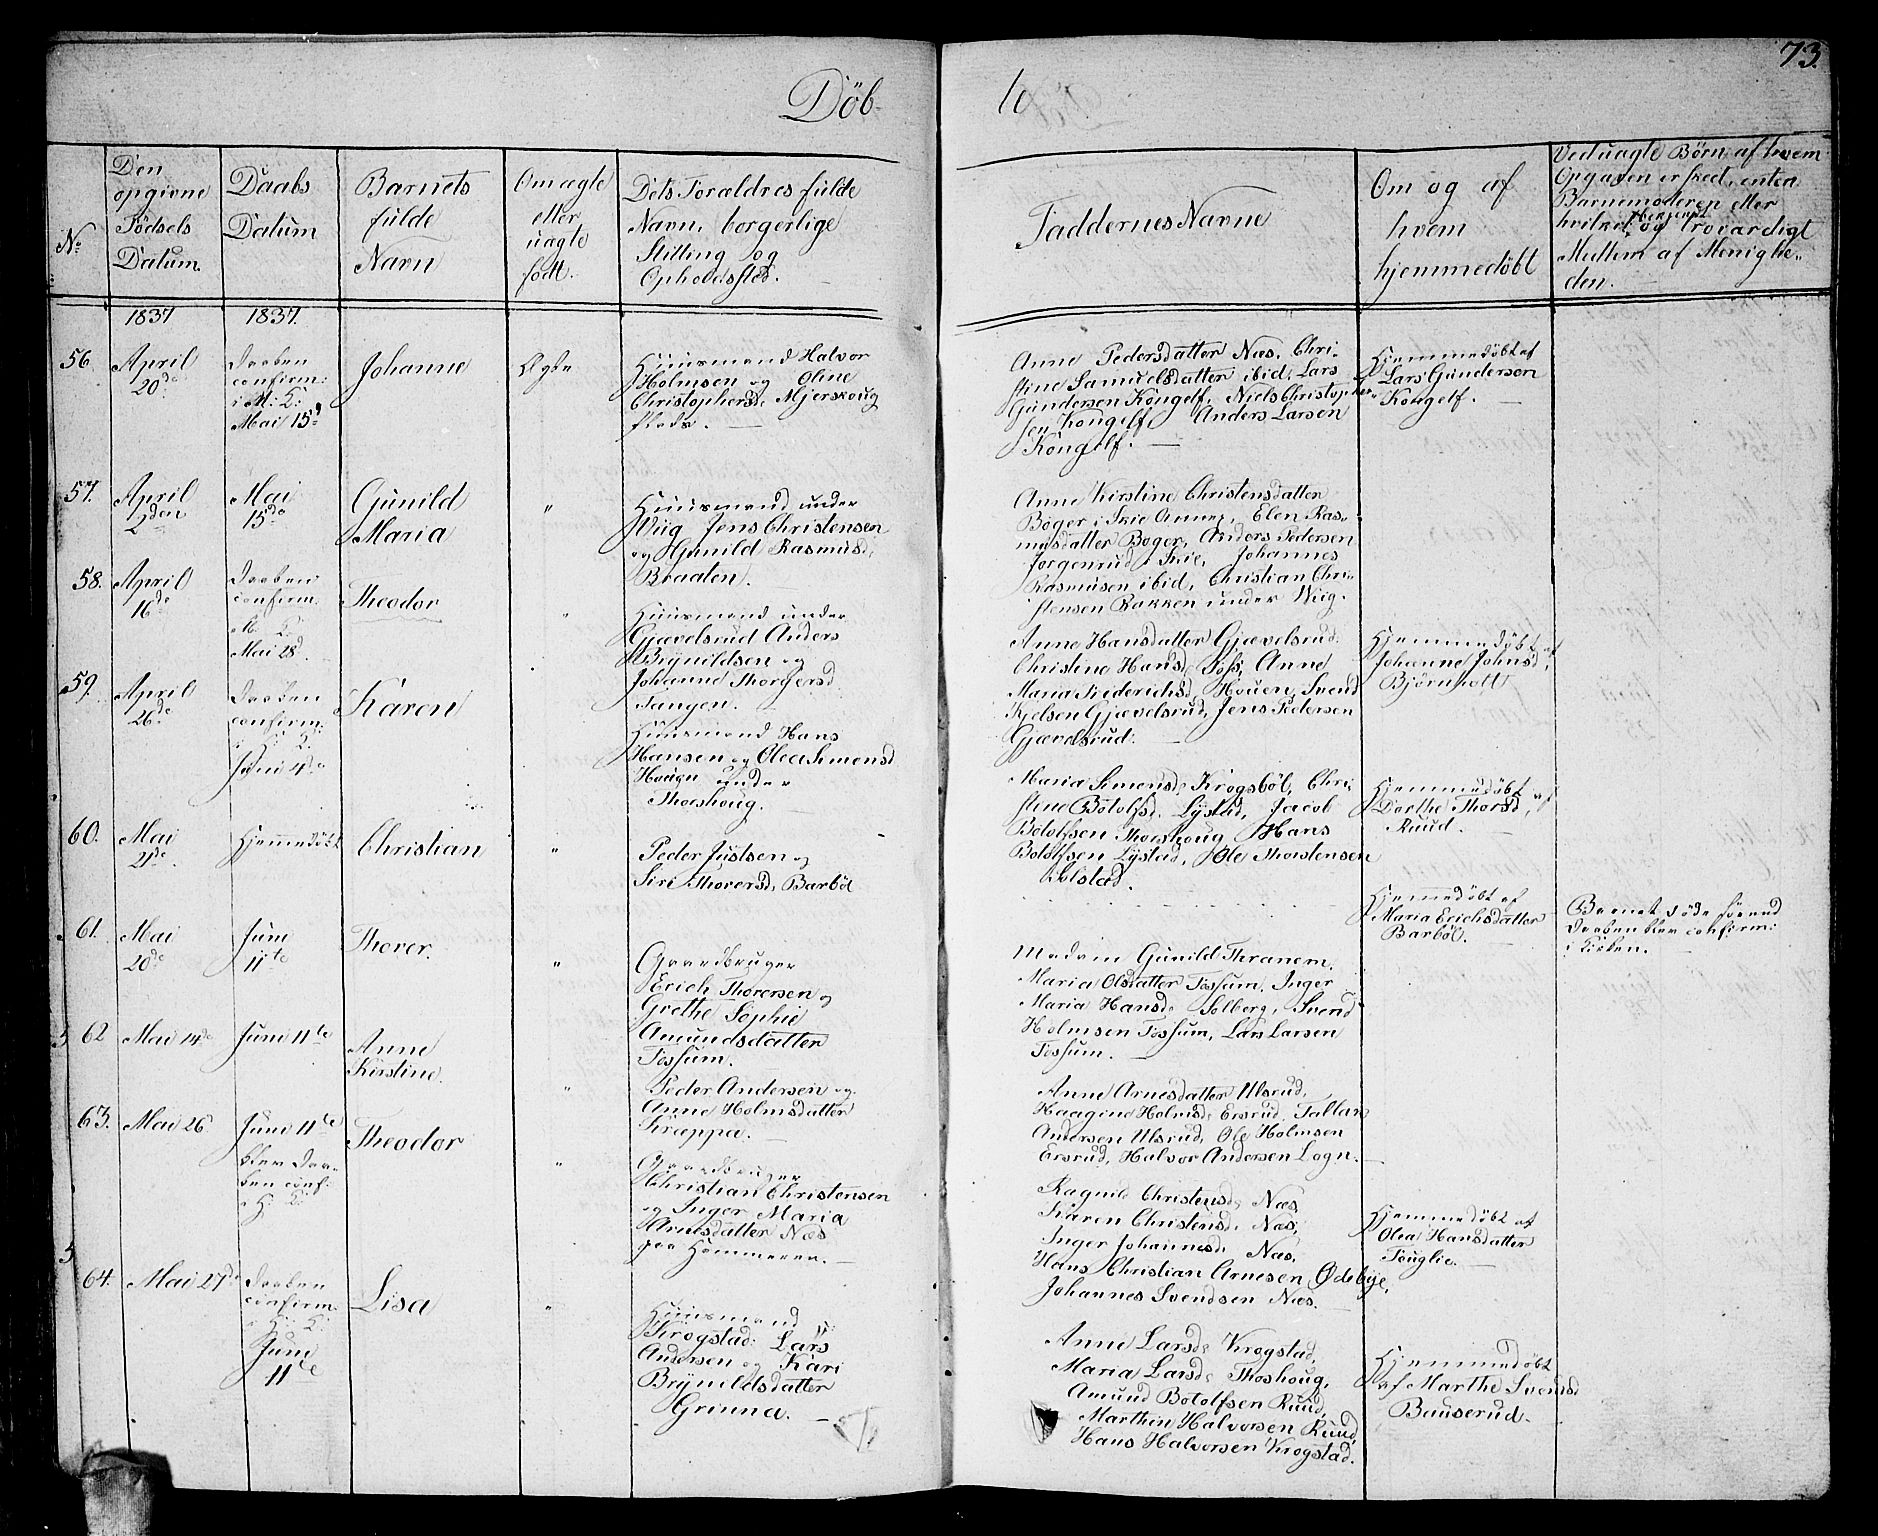 73.
Döbte
No
Den
opgivne
Födsels
Datum.
Daabs
Datum
Barnets
fulde
Navn
Om ægte
eller
uægte
født.
Dets Forældres fulde
Navn, borgerlige
Stilling og
Opholdssted.
Faddernes Navne
Om og af
hvem
hjemmedøbt
Ved uægte Børn af hvem
Opgaven er skeed, enten
Barnemoderen eller
hvilket og troværdigt
Mellem af Menighe-
den.
1837
1837.
56.
April
20de
Daaben
confirm:
i M: K:
Mai 15d
Johanne
Ægte
Huusmand Halvor
Holmsen og Oline
Christophersd. Mjerskoug
Plads.
Anne Pedersdatter Næs, Chri-
stine Samuelsdatter ibid, Lars
Gundersen Kongelf, Niels Christopher-
sen Kongelf, Anders Larsen
Kongelf.
Hjemmedöbt af
Lars Gundersen
Kongelf.
57.
April
2den
Mai
15de
Gunild
Maria
"
Huusmand under
Wiig Jens Christensen
og Gunild Rasmusd.
Braaten.
Anne Kirstine Christensdatter
Böger i Skie Annex, Elen Ras-
musdatter Boger, Anders Pedersen
Jorgenrud i Skie, Johannes
Rasmusen ibid, Christian Chri-
stensen Bakken under Wiig.
58.
April
16de
Daaben
confirm.
M. K:
Mai 28d.
Theodor
"
Huusmand under
Gjævelsrud Anders
Brynildsen og
Johanne Thorgersd
Tangen.
Anne Hansdatter Gjævelsrud.
Christine Hansd. Foss, Anne
Maria Friderichsd. Houen, Svend
Kjelsen Gjævelsrud, Jens Pedersen
Gjævelsrud.
Hjemmedöbt af
Johanne Johnsd.
Björnholt
59.
April
26de
Daaben
confirm:
i H: K:
Juni 4de
Karen
Huusmand Hans
Hansen og Olea Simensd
Hougn under
Thorshoug.
Maria Simensd. Krogsböl, Chri-
stine Botolfsd. Lystad, Jacob
Botolfsen Thorshoug Hans
Botolfsen Lystad, Ole Thorstensen
Solstad.
Hjemmedöbt af
Dorthe Thorsd,
Ruud.
60.
Mai
21de
Hjemmedöbt
Christian
"
Peder Justsen og
Siri Thorersd, Barböl
Hjemmedöbt af
Maria Erichsdatter
Barböl.
Barnet döde förend
Daaben blev confirm:
i Kirken.
61.
Mai
20de
Juni
11te
Thover.
"
Gaardbruger
Erich Thorersen og
Grethe Sophie
Amundsdatter
Fossum.
Madam Gunild Thranem,
Maria Olsdatter Fossum, Inger
Maria Hansd. Solberg, Svend
Holmsen Fossum, Lars Larsen
Fossum.
62
Mai 14de
Juni 11te
Anne
Kirstine.
"
Peder Andersen og
Anne Holmsdatter
Kræppa.
Anne Arnesdatter Ulsrud,
Haagine Holmsd. Ersrud, Tallan
Andersen Ulsrud, Ole Holmsen
Ersrud, Halvor Andersen Logn.
63.
Mai 26
Juni 11te
blev Daa-
ben conf.
i H: K:
Theodor
"
Gaardbruger
Christian Christensen
og Inger Maria
Arnesdatter Næs
paa Hemmeren.
Ragnild Christensd. Næs,
Karen Christensd. Næs,
Inger Johannesd. Næs.
Hans Christian Arnesen Ødebye,
Johannes Svendsen Næs.
Hjemmedöbt af
Olea Hansdatter
Fouglie.
64.
Mai 27de
Daaben
confirm.
i H: K:
Juni
11te
Lisa
"
Huusmand u:
Krogstad: Lars
Andersen og Kari
Brynildsdatter
Grinna.
Anne Larsd. Krogstad,
Maria Larsd. Thoshoug,
Amund Botolfsen Ruud,
Marthin Halvorsen Ruud,
Hans Halvorsen Krogstad.
Hjemmedöbt
af Marthe Svensd
Bauserud.